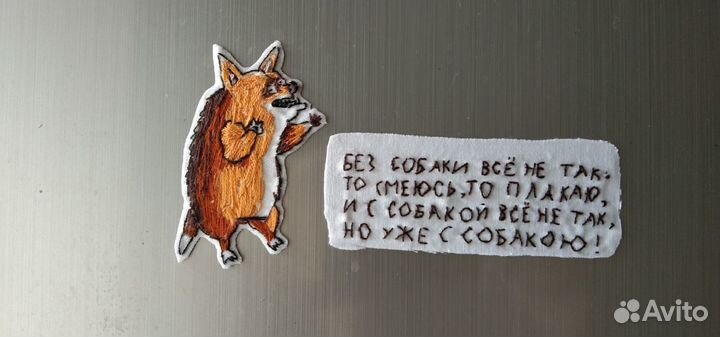 БЕЗ СОБАКИ ВСЁ НЕ ТАК:
ТО СМЕЮСЬ, ТО ПЛАКАЮ,
И С СОБАКОЙ ВСЁ НЕ ТАК,
НО УЖЕ С СОБАКОЮ!
Avito